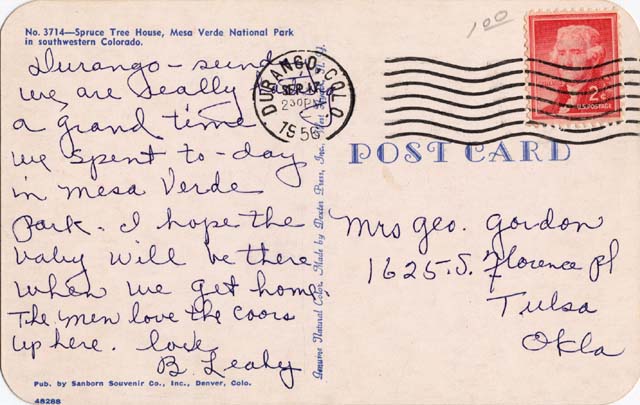 No. 3714—Spruce Tree House, Mesa Verde National Park
in southwestern Colorado.
Durango - sund
we are really
a grand time
we spent to-day
in Mesa Verde
Park. I hope the
baby will be there
when we get home
The men love the Coors
up here. love
B. Leahy
Pub. by Sanborn Souvenir Co., Inc., Denver, Colo.
48288
Genuine Natural Color. Made by Dexter Press, Inc.
1 00
DURANGO, COLO.
SEP
2 30 PM
1956
2¢
U.S. POSTAGE
POST CARD
Mrs Geo. Gordon
1625 S. Florence Pl
Tulsa
Okla